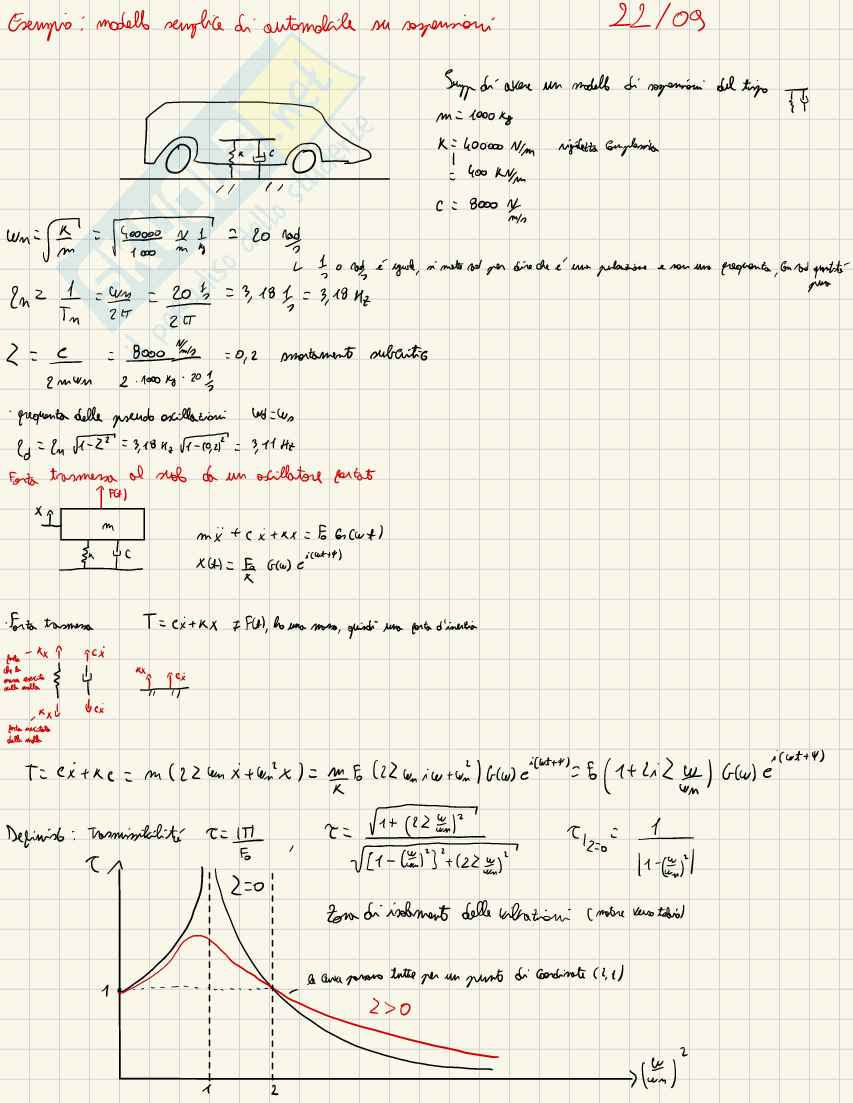 Esempio: modello semplice di automobile su sospensioni 22/09
Supp di avere un modello di sospensioni del tipo
m = 1000 kg
K = 400000 N/m rigidezza complessiva
= 400 KN/m
C = 8000 N/m/s
K C
ωn = √(K/m) = √(400000/1000 N/m 1/kg) = 20 rad/s
↳ 1/s o rad/s è uguale, si mette rad per dire che è una pulsazione e non una frequenza, con rad quantità pura
fn = 1/Tn = ωn/2π = (20 1/s)/2π = 3,18 1/s = 3,18 Hz
Z = C/(2mωn) = (8000 N/m/s)/(2·1000 kg·20 1/s) = 0,2 smorzamento subcritico
· frequenza delle pseudo oscillazioni ωd=ωs
fd = fn √(1-Z²) = 3,18 Hz √(1-(0,2)²) = 3,11 Hz
Forza trasmessa al suolo da un oscillatore forzato
F(t)
X
m
K C
mẍ + cẋ + Kx = F₀ cos(ωt)
X(t) = F₀/K G(ω) e^i(ωt+ψ)
· Forza trasmessa T = cẋ + Kx ≠ F(t), ho una massa, quindi una forza d'inerzia
forza che la massa esercita sulla molla
Kx cẋ
Kx cẋ
Kx cẋ
forza esercitata dalla molla
T = cẋ + Kc = m(2Zωn ẋ + ωn² x) = m/K F₀ (2Zωn iω + ωn²) G(ω) e^i(ωt+ψ) = F₀ (1 + 2iZ ω/ωn) G(ω) e^i(ωt+ψ)
Definisco: trasmissibilità τ = |T|/F₀ , τ = √(1+(2Z ω/ωn)²) / √([1-(ω/ωn)²]²+(2Z ω/ωn)²) τ|z=0 = 1/|1-(ω/ωn)²|
τ
Z=0
Zona di isolamento delle vibrazioni (motore verso telaio)
le curve passano tutte per un punto di coordinate (2,1)
1
Z>0
1 2 (ω/ωn)²
skuola.net
il paradiso dello studente